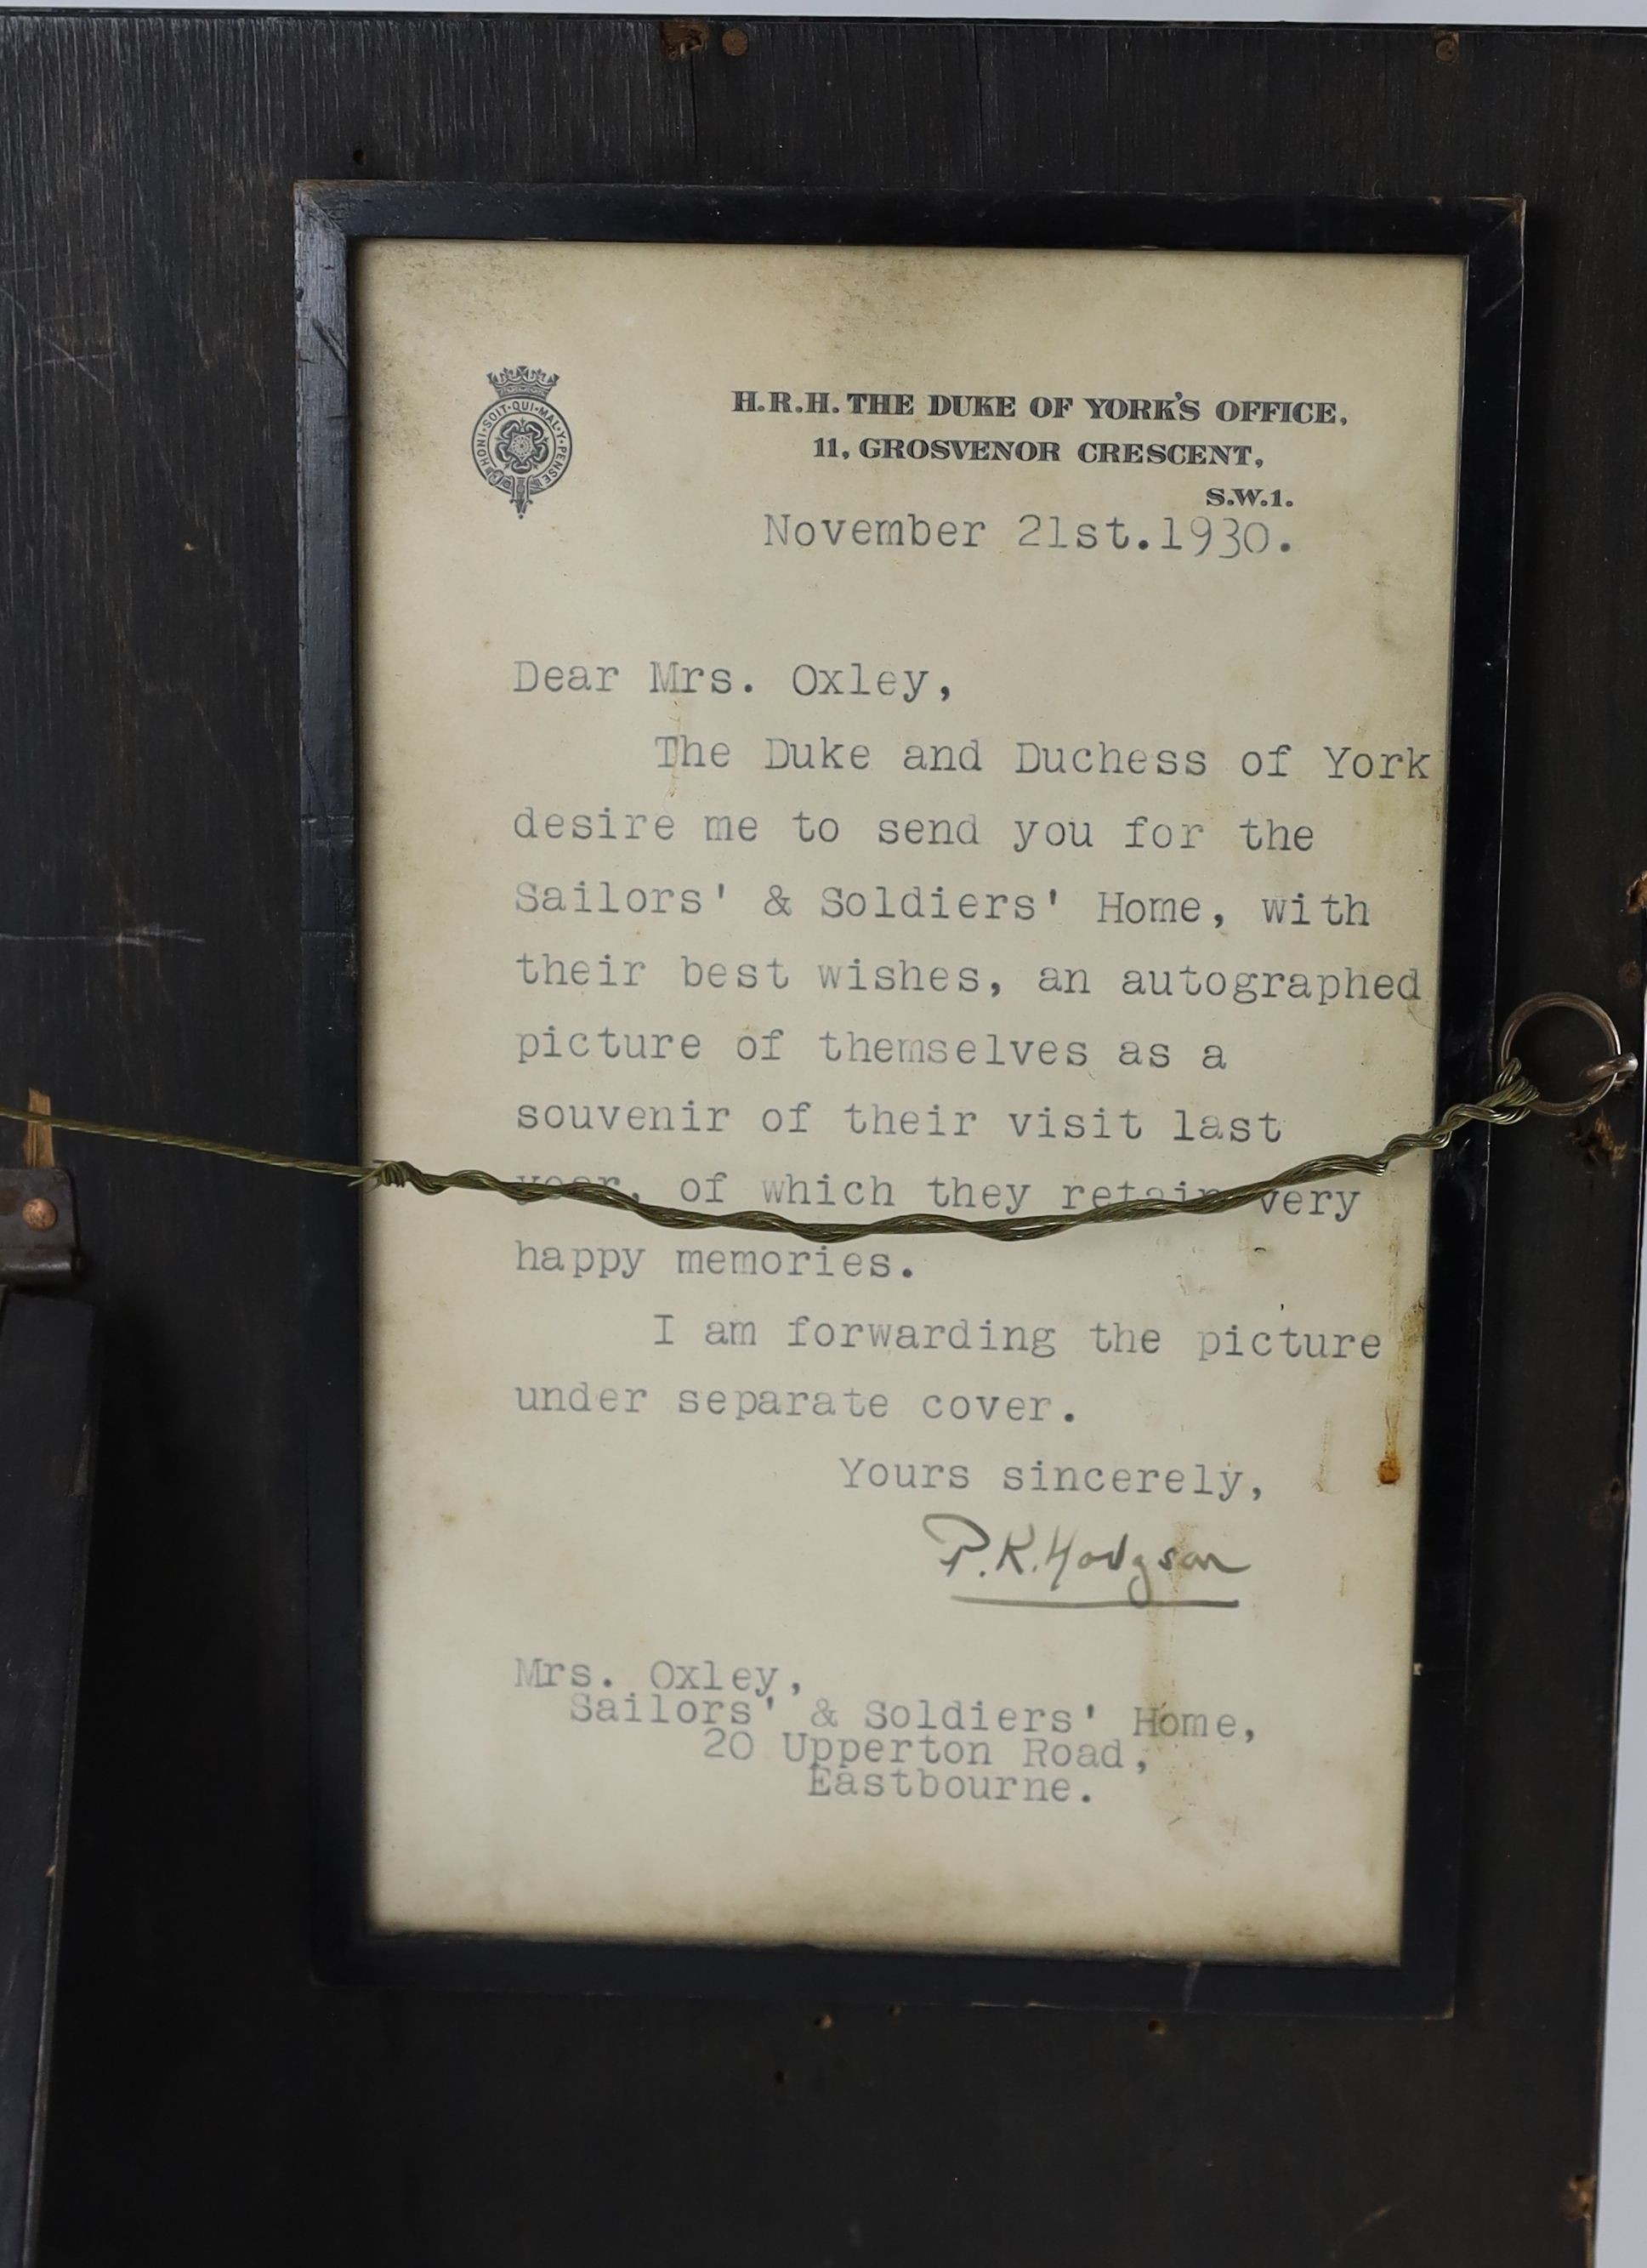 HONI·SOIT·QUI·MAL·Y·PENSE
H.R.H. THE DUKE OF YORK'S OFFICE,
11, GROSVENOR CRESCENT,
S.W.1.
November 21st.1930.
Dear Mrs. Oxley,
The Duke and Duchess of York
desire me to send you for the
Sailors' & Soldiers' Home, with
their best wishes, an autographed
picture of themselves as a
souvenir of their visit last
year, of which they retain very
happy memories.
I am forwarding the picture
under separate cover.
Yours sincerely,
P.K. Hodgson
Mrs. Oxley,
Sailors' & Soldiers' Home,
20 Upperton Road,
Eastbourne.